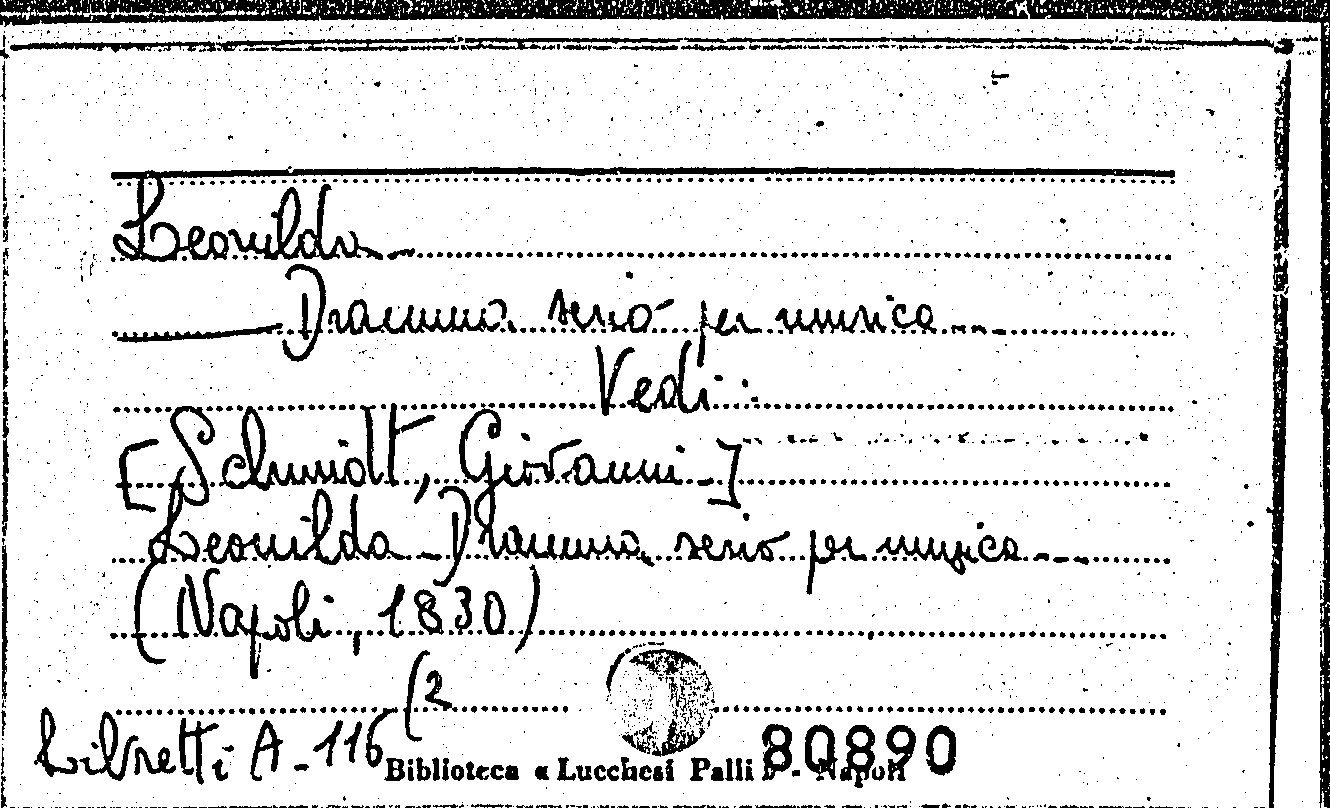 Leonilda -
Dramma serio per musica ....
Vedi:
[Schmidt, Giovanni -]
Leonilda - Dramma serio per musica ....
(Napoli, 1830)
(2
Libretti A - 116
Biblioteca « Lucchesi Palli » - Napoli
80890